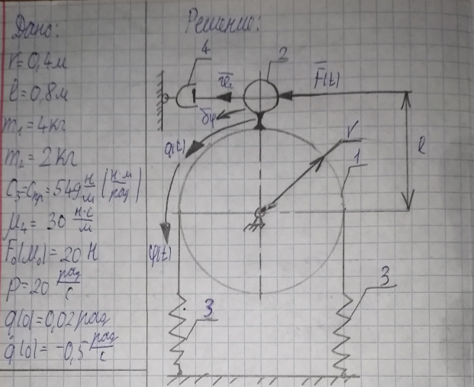 Дано:
r = 0,4 м
l = 0,8 м
m₁ = 4 кг
m₂ = 2 кг
C₃ = Cпр = 549 Н/м (Н·м/рад)
μ₄ = 30 Н·с/м
F₀(M₀) = 20 Н
p = 20 рад/с
q(0) = 0,02 рад
q̇(0) = -0,5 рад/с
Решение:
4
2
F̄(t)
δφ
q(t)
r
1
l
φ(t)
3
3